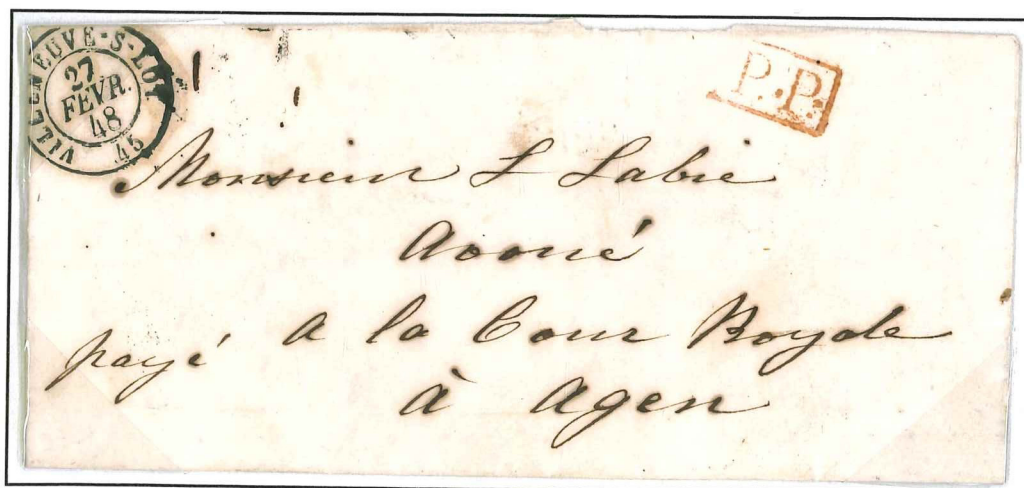 VILLENEUVE-S-LOT
27
FÉVR.
48
45
P.P.
Monsieur L Labie
Avoué
payé a la Cour Royale
à Agen